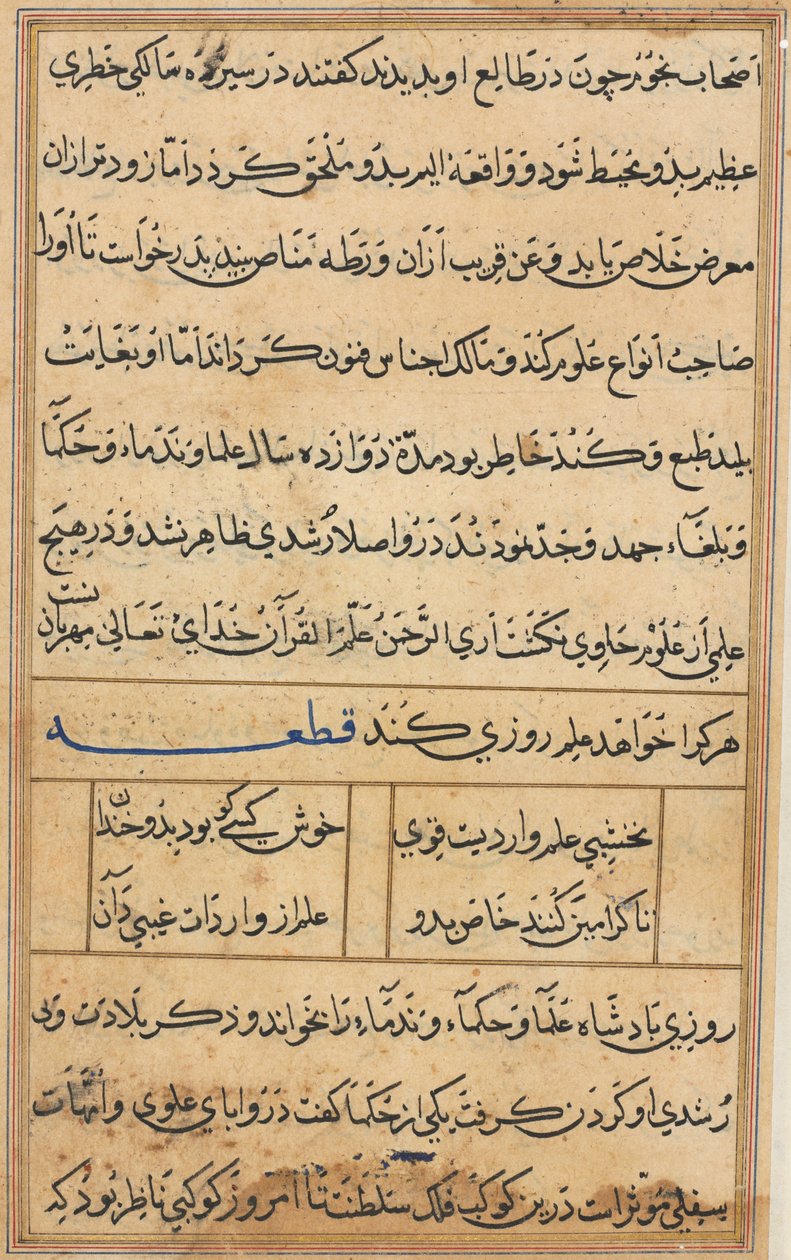 اَصَحاب نجُوُم چون دَرطَالِع او بدیذند کفتند دَرسیزده سَالکی خَطِری
عِظِیم بِذِو محُیَط شَوَد وَوَاقعَهٔ الیم بدَو مُلْحَق کَرذذ اَمّا زود تر ازان
معرض خَلَاص یَابد وَعَن قِریب اَزَان وَرَطَه مَنَاص بیند پدَر خُوَاست تَا اُورَا
صَاحِبُ اَنوَاع عَلوم کُنَدَ وَ مَالک اجناس فنون کَرَدَانَد اَمّا اوَ بَغَایَتْ
بلید طَبع وَ کَنُدَ خَاطِر بود مدّةِ دَوَازَده سَال علما وَنَدَماء وَحَکمَآ
وَبلغَآء جهد وَجَدّ نموذنُدَ دَرُو اصلا رُشدی ظَاهِر نشد وَدَرِهِیَچ
عِلِمی اَز عُلُوْم حَاوِی نکَشَتَ اَری الرَّحمَنُ عَلَّمَ القُرآنُ خُدَایُ تَعَالیٰ مِهربَان نست
هرکرا خَوَاهَد عِلِم روزی کُنَدَ قطعه
نخشِبی علم وارِدیست قِوی
خوش کسِی کو بود بِذو خَندان
نا کرا مِیَن کُنَندَ خَاصَ بدو
علم از وارِدَات غیبی دَآن
روزِی بَادشَاه عَلَمَآ وَحکمآء وَنَدمَآءِ رَا بخَواند و ذکر بَلَادَت وَبی
رُشدی او کَردَن کرِفت یکَی از حَکَمَا کفت دَرُ وابای علوی واُمّهَات
سِفِلِی مَوَثّر است دَرین کوکبَ فلَک سَلطَنَت تَا اَمرُوزَ کوَکبی نَاظِر بُوذ کِه